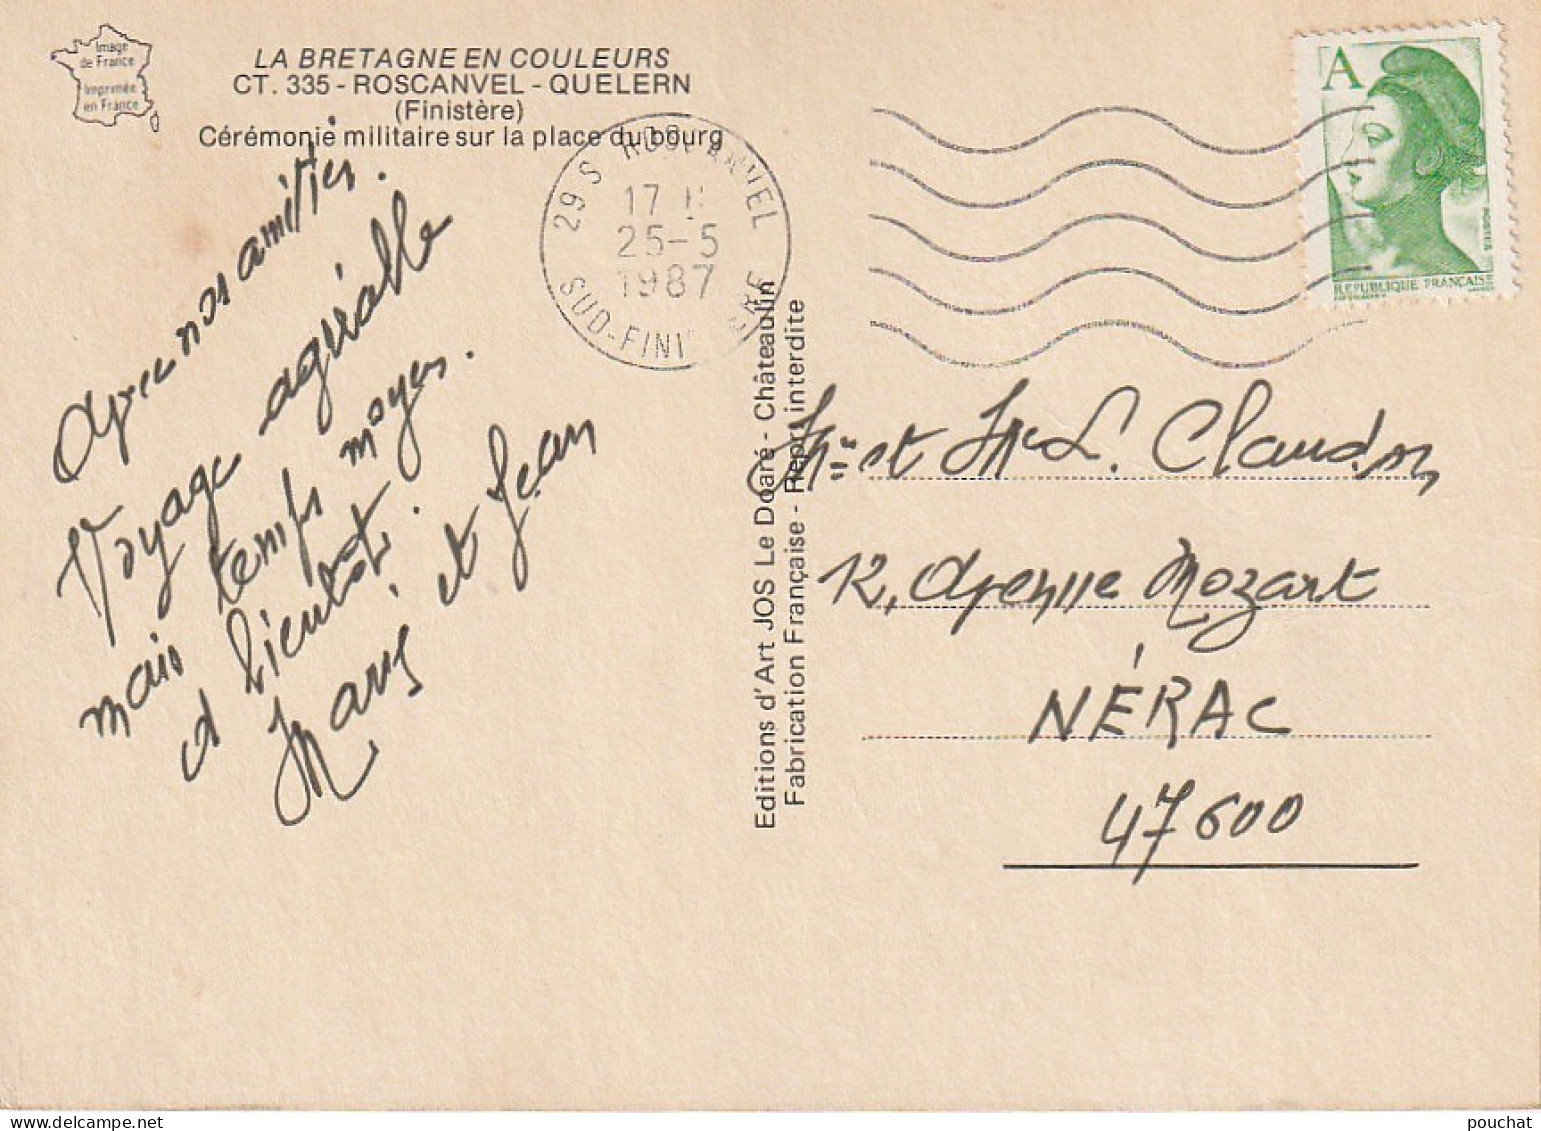 Image
de France
Imprimée
en France
LA BRETAGNE EN COULEURS
CT. 335 - ROSCANVEL - QUELERN
(Finistère)
Cérémonie militaire sur la place du bourg
29 S ROSCANVEL
17 H
25-5
1987
SUD-FINISTERE
A
POSTES
REPUBLIQUE FRANÇAISE
Avec nos amitiés.
Voyage agréable
mais temps moyen.
à bientôt.
et Jean
Editions d'Art JOS Le Doaré - Châteaulin
Fabrication Française - Repr. interdite
Mr et Mme L. Claudon
12, Avenue Mozart
NÉRAC
47600
pouchat